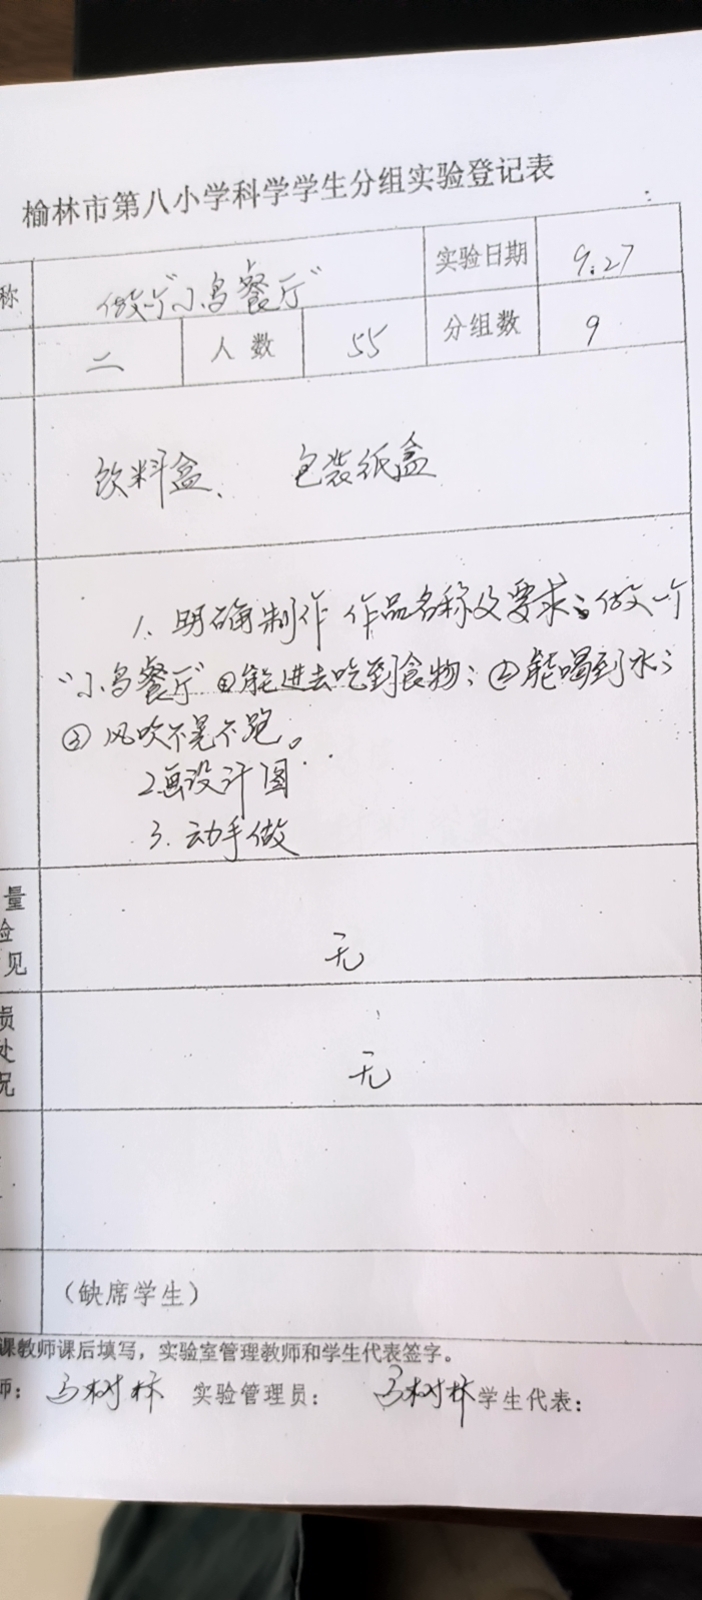 榆林市第八小学科学学生分组实验登记表
称 做个“小鸟餐厅” 实验日期 9.27
二 人数 55 分组数 9
饮料盒、 包装纸盒
1. 明确制作 作品名称及要求:做一个
“小鸟餐厅”①能进去吃到食物;②能喝到水;
③风吹不晃不跑。
2画设计图
3. 动手做
量
验
见 无
损
处
况 无
(缺席学生)
课教师课后填写,实验室管理教师和学生代表签字。
师: 马树林 实验管理员: 马树林 学生代表: